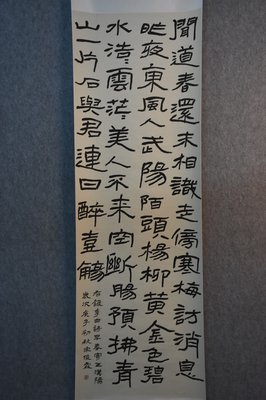 聞道春還未相識走傍寒梅訪消息
昨夜東風入武陽陌頭楊柳黃金色碧
水浩〻雲茫〻美人不來空斷腸預拂青
山一片石與君連日醉壺觴
右錄李白詩早春寄王漢陽
歲次庚子初秋